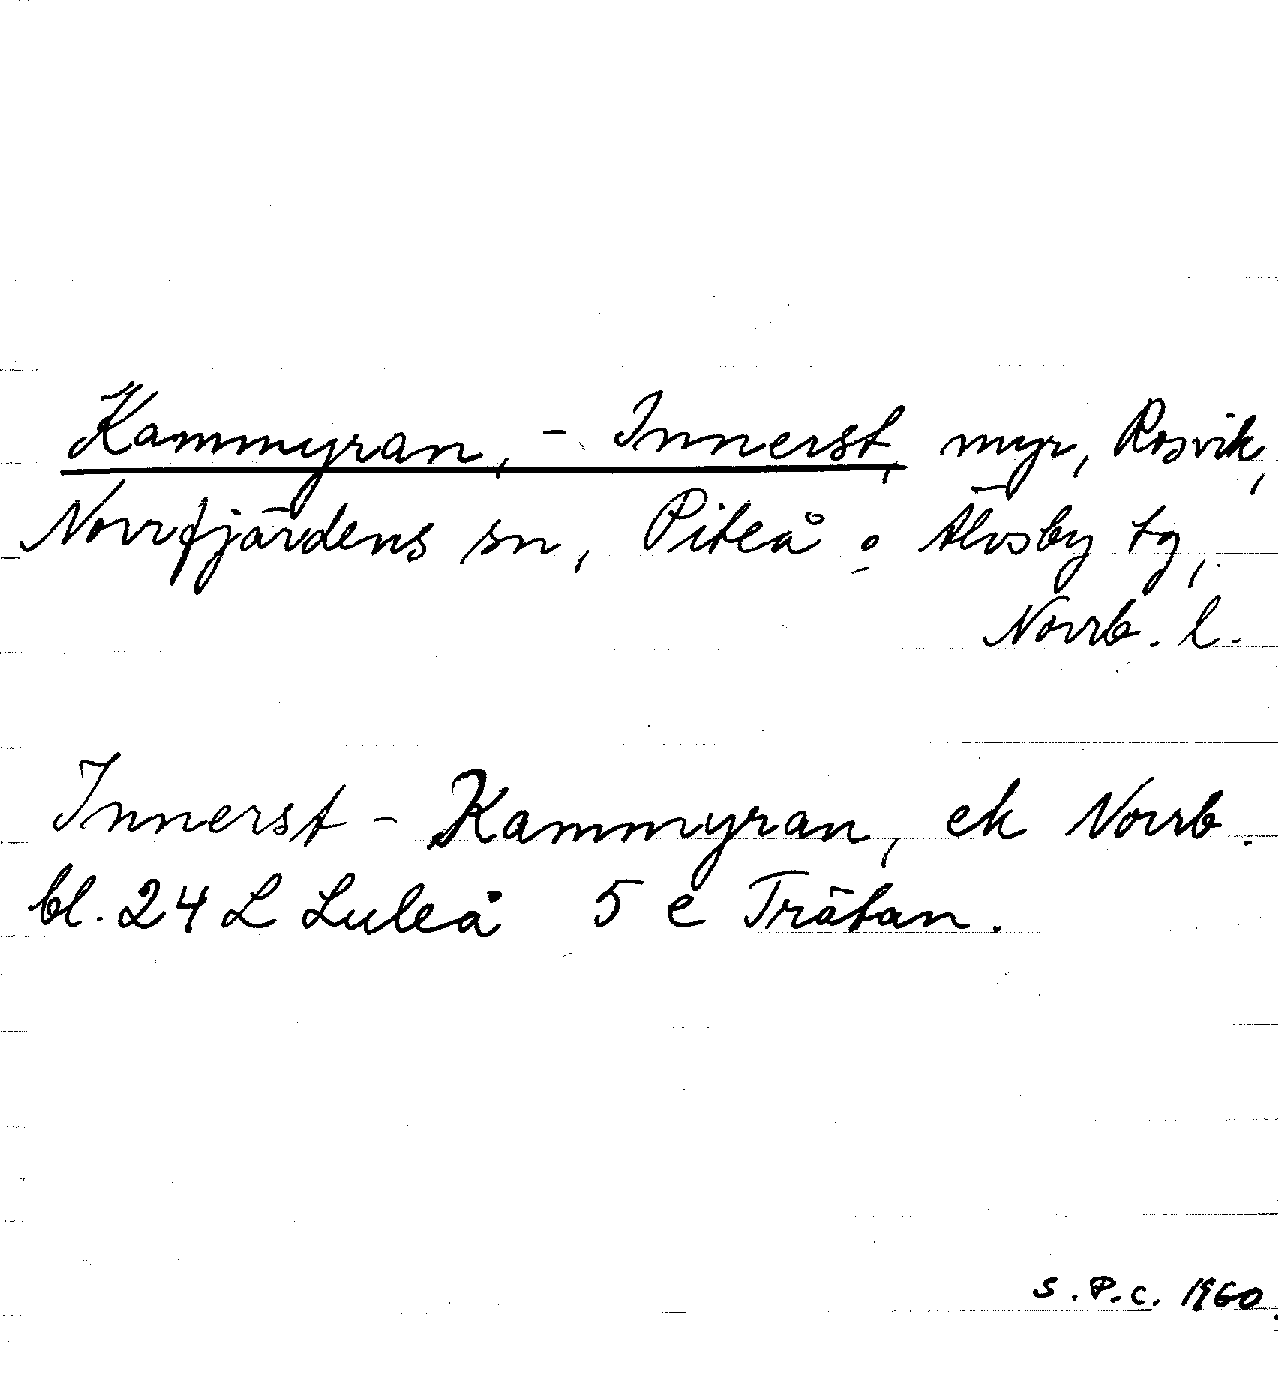 Kammyran, - Innerst, myr, Rosvik,
Norrfjärdens sn, Piteå o Älvsby tg,
Norrb. l.
Innerst - Kammyran, ek Norrb.
bl. 24 L Luleå 5 e Trätan.
S.P.C. 1960.